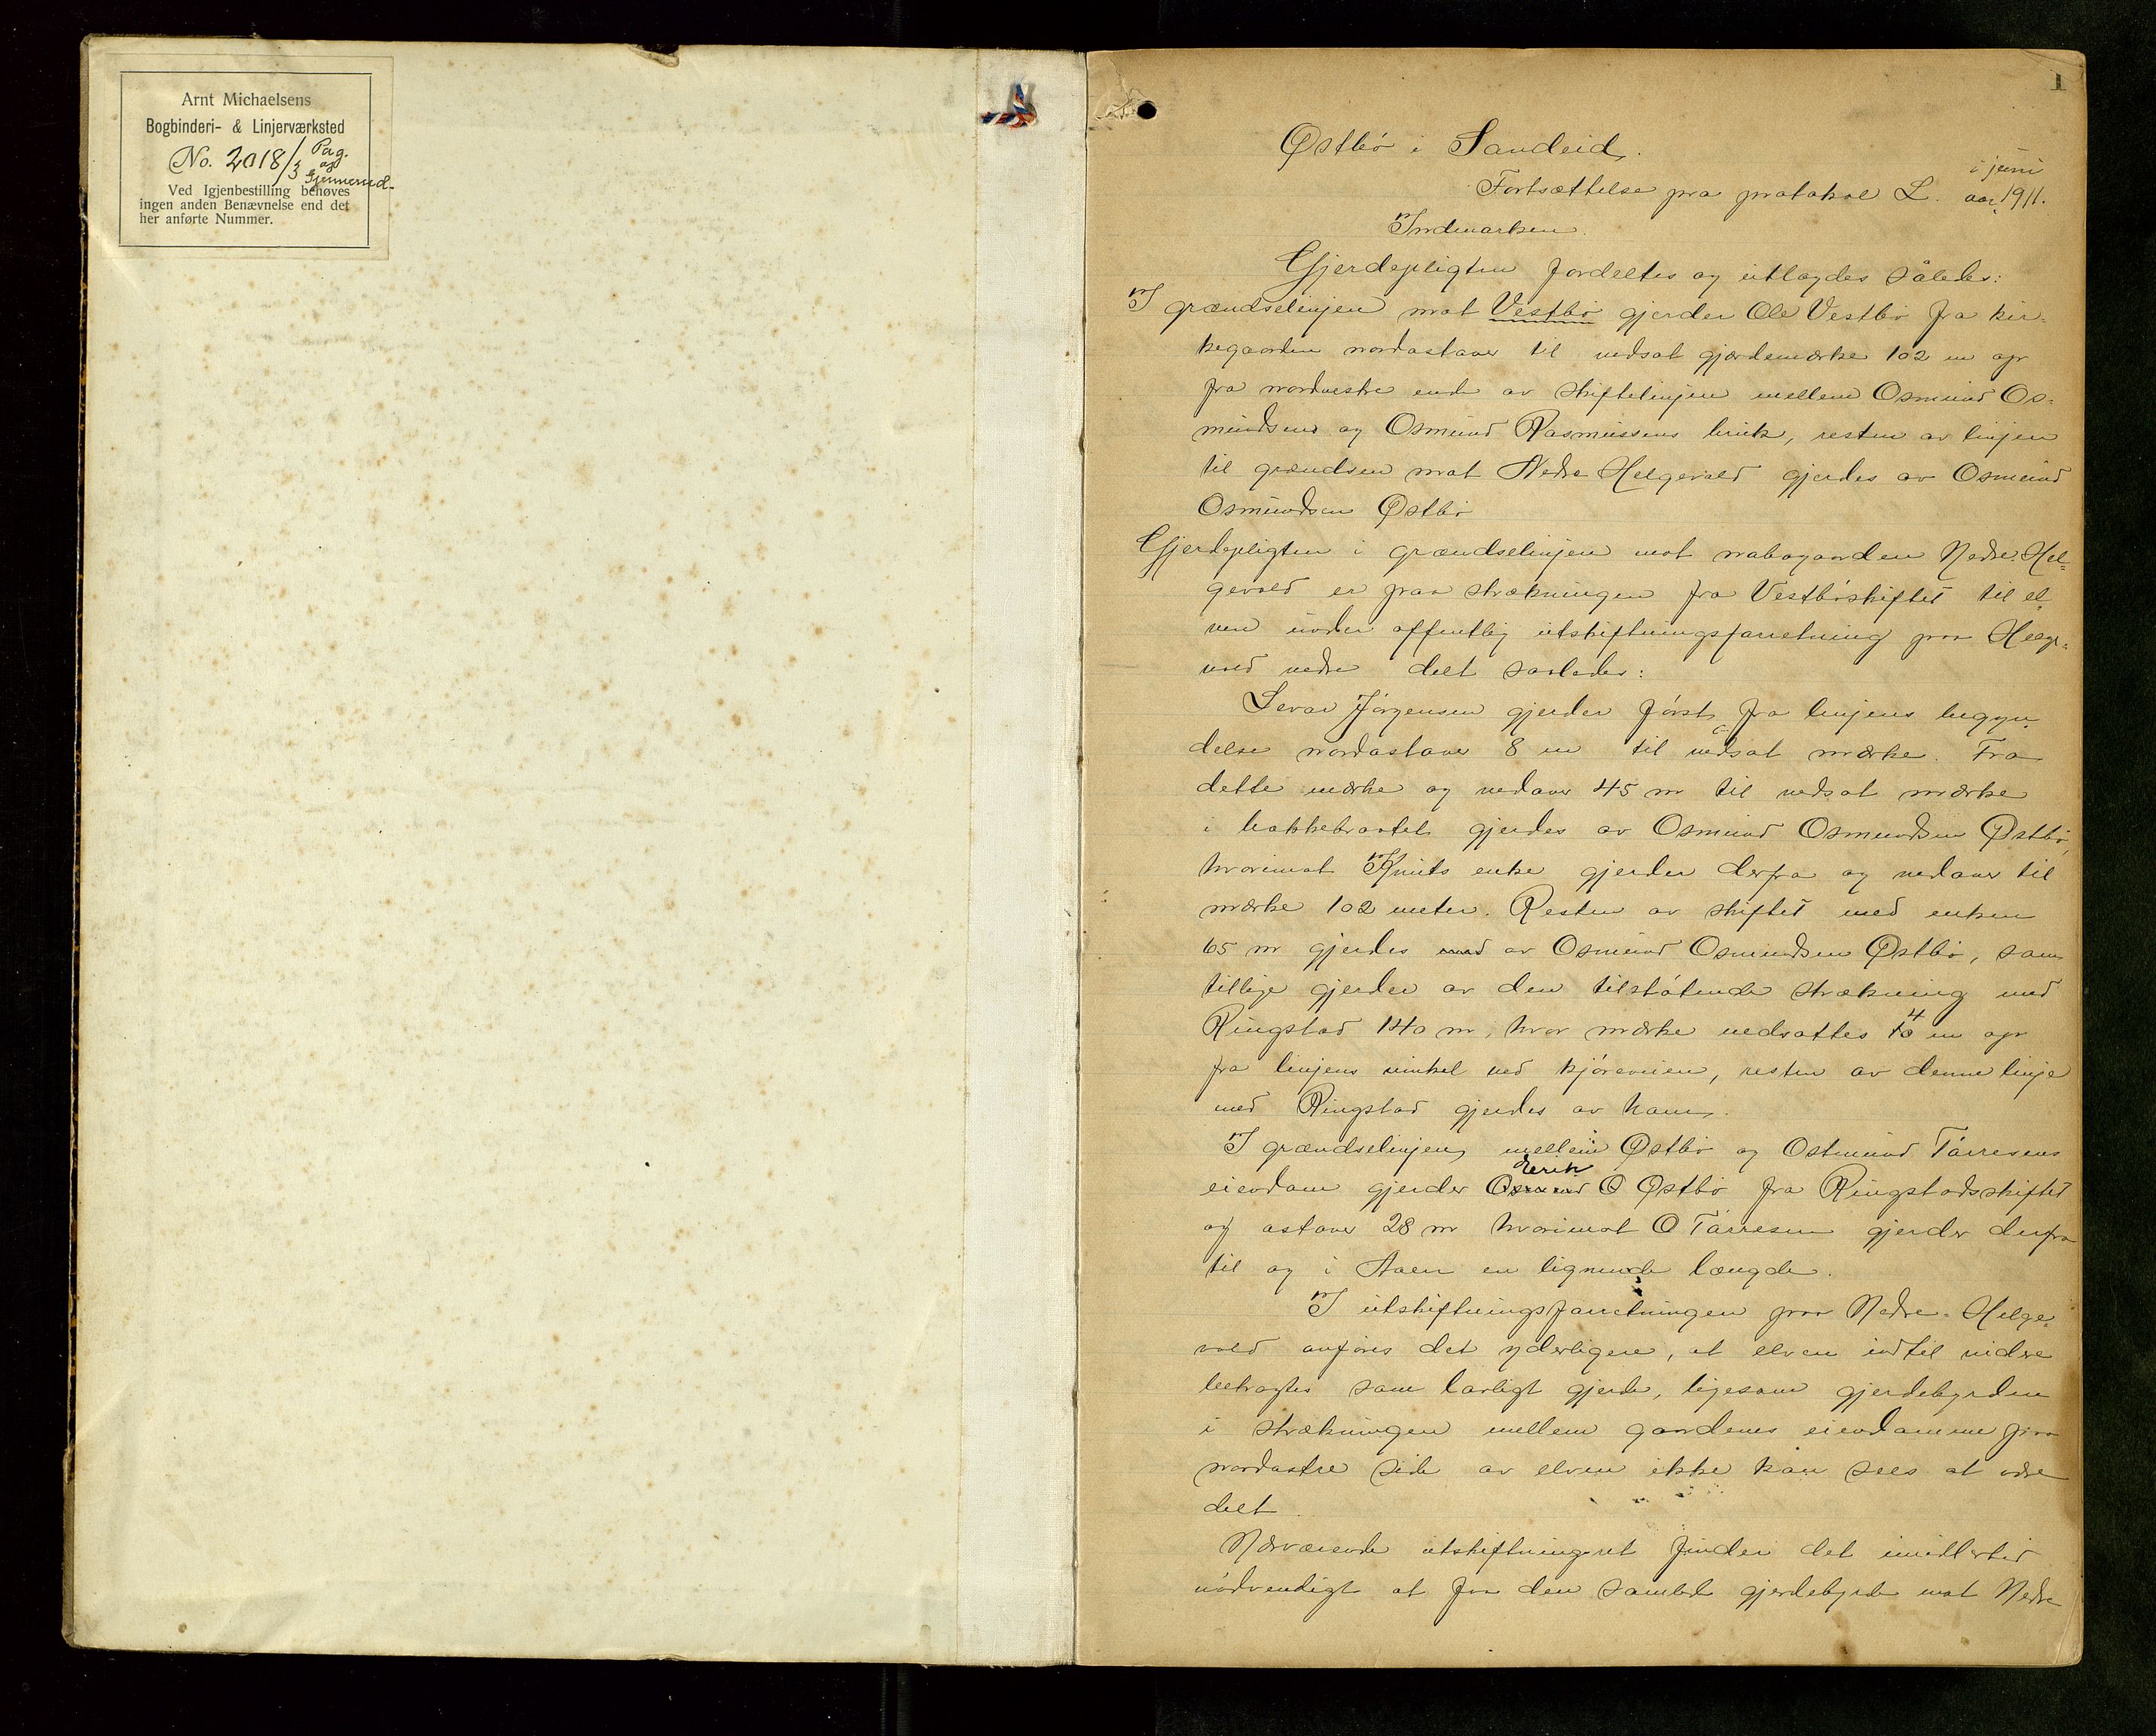 Arnt Michaelsens
Bogbinderi- & Linjerværksted
No. 2018/3 Pag.
og
Gjennemed-
Ved Igjenbestilling behøves
ingen anden Benævnelse end det
her anførte Nummer.
1
Østbø i Sandeid.
i juni
Fortsættelse fra protokol L. aar 1911.
Indmarken.
Gjerdepligten fordeltes og utlagdes således:
I grændselinjen mot Vestbø gjerder Ole Vestbø fra kir-
kegaarden nordastaver til nedsat gjærdemærke 102 m op
fra nordvestre ende av skiftelinjen mellem Osmund Os-
mundsens og Osmund Rasmussens bruk, resten av linjen
til grændsen mot Nedre Helgevold gjerdes av Osmund
Osmundsen Østbø
Gjerdepligten i grændselinjen mot nabogaarden Nedre Hel-
gevold er paa strækningen fra Vestbøskiftet til el-
ven under offentlig utskiftningsforretning paa Helge-
vold nedre delt saaledes:
Sevar Jørgensen gjerder først fra linjens begyn-
delse nordastaver 8 m til nedsat mærke. Fra
dette mærke og nedaver 45 m til nedsat mærke
i bakkebrattet gjerdes av Osmund Osmundsen Østbø,
hvorimot Knuts enke gjerder derfra og nedaver til
mærke 102 meter. Resten av skiftet med enken
65 m gjerdes med av Osmund Osmundsen Østbø, som
tillige gjerder av den tilstøtende strækning med
Ringstad 140 m, hvor mærke nedsattes 40 m op
fra linjens vinkel ved kjøreveien, resten av denne linje
med Ringstad gjerdes av ham.
I grændselinjen mellem Østbø og Ostmund Tørresens
Erik
eiendom gjerder Osmund O Østbø fra Ringstadskiftet
og astaver 28 m hvorimot O Tørresen gjerder derfra
til og i Aaen en lignende længde.
I utskiftningsforretningen paa Nedre Helge-
vold anføres det yderligere, at elven indtil videre
betragtes som lovligt gjerde, ligesom gjerdebyrden
i strækningen mellem gaardenes eiendomme paa
nordøstre side av elven ikke kan sees at være
delt.
Nærværende utskiftningsret finder det imidlertid
nødvendigt at faa den samlede gjerdebyrde mot Nedre